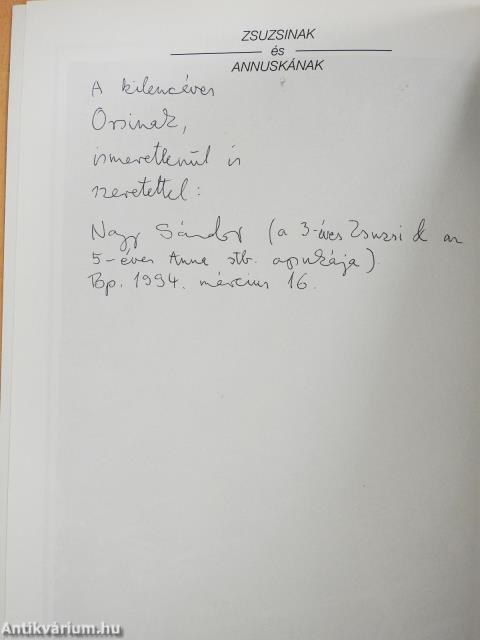 ZSUZSINAK
és
ANNUSKÁNAK
A kilencéves
Orsinak,
ismeretlenül is
szeretettel:
Nagy Sándor (a 3-éves Zsuzsi & az
5-éves Anna stb. apukája).
Bp. 1994. március 16.
Antikvárium.hu